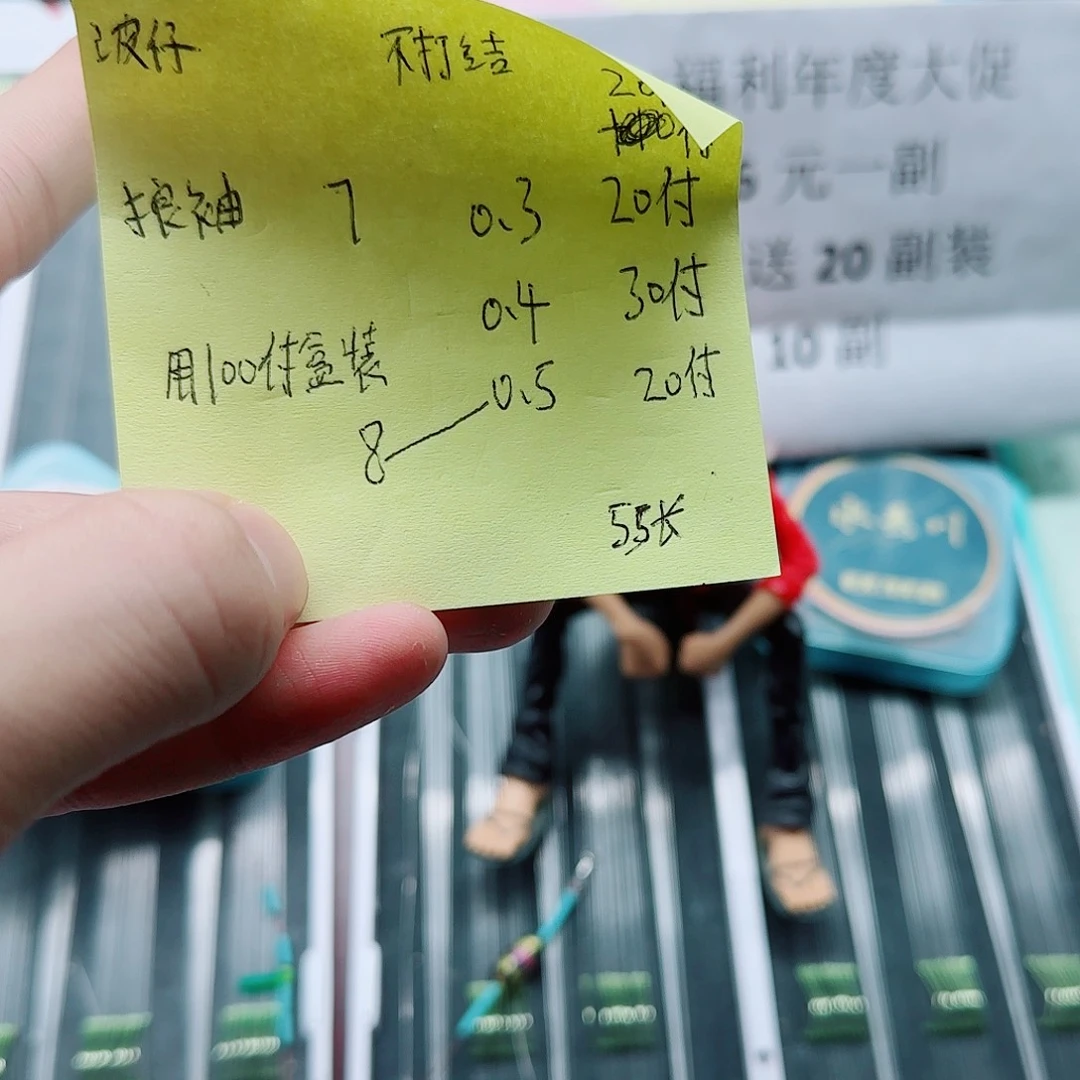 波仔 不打结
20
20付
狼袖 7 0.3 20付
0.4 30付
用100付盒装 0.5 20付
8
55长
福利年度大促
元一副
送 20 副装
10 副